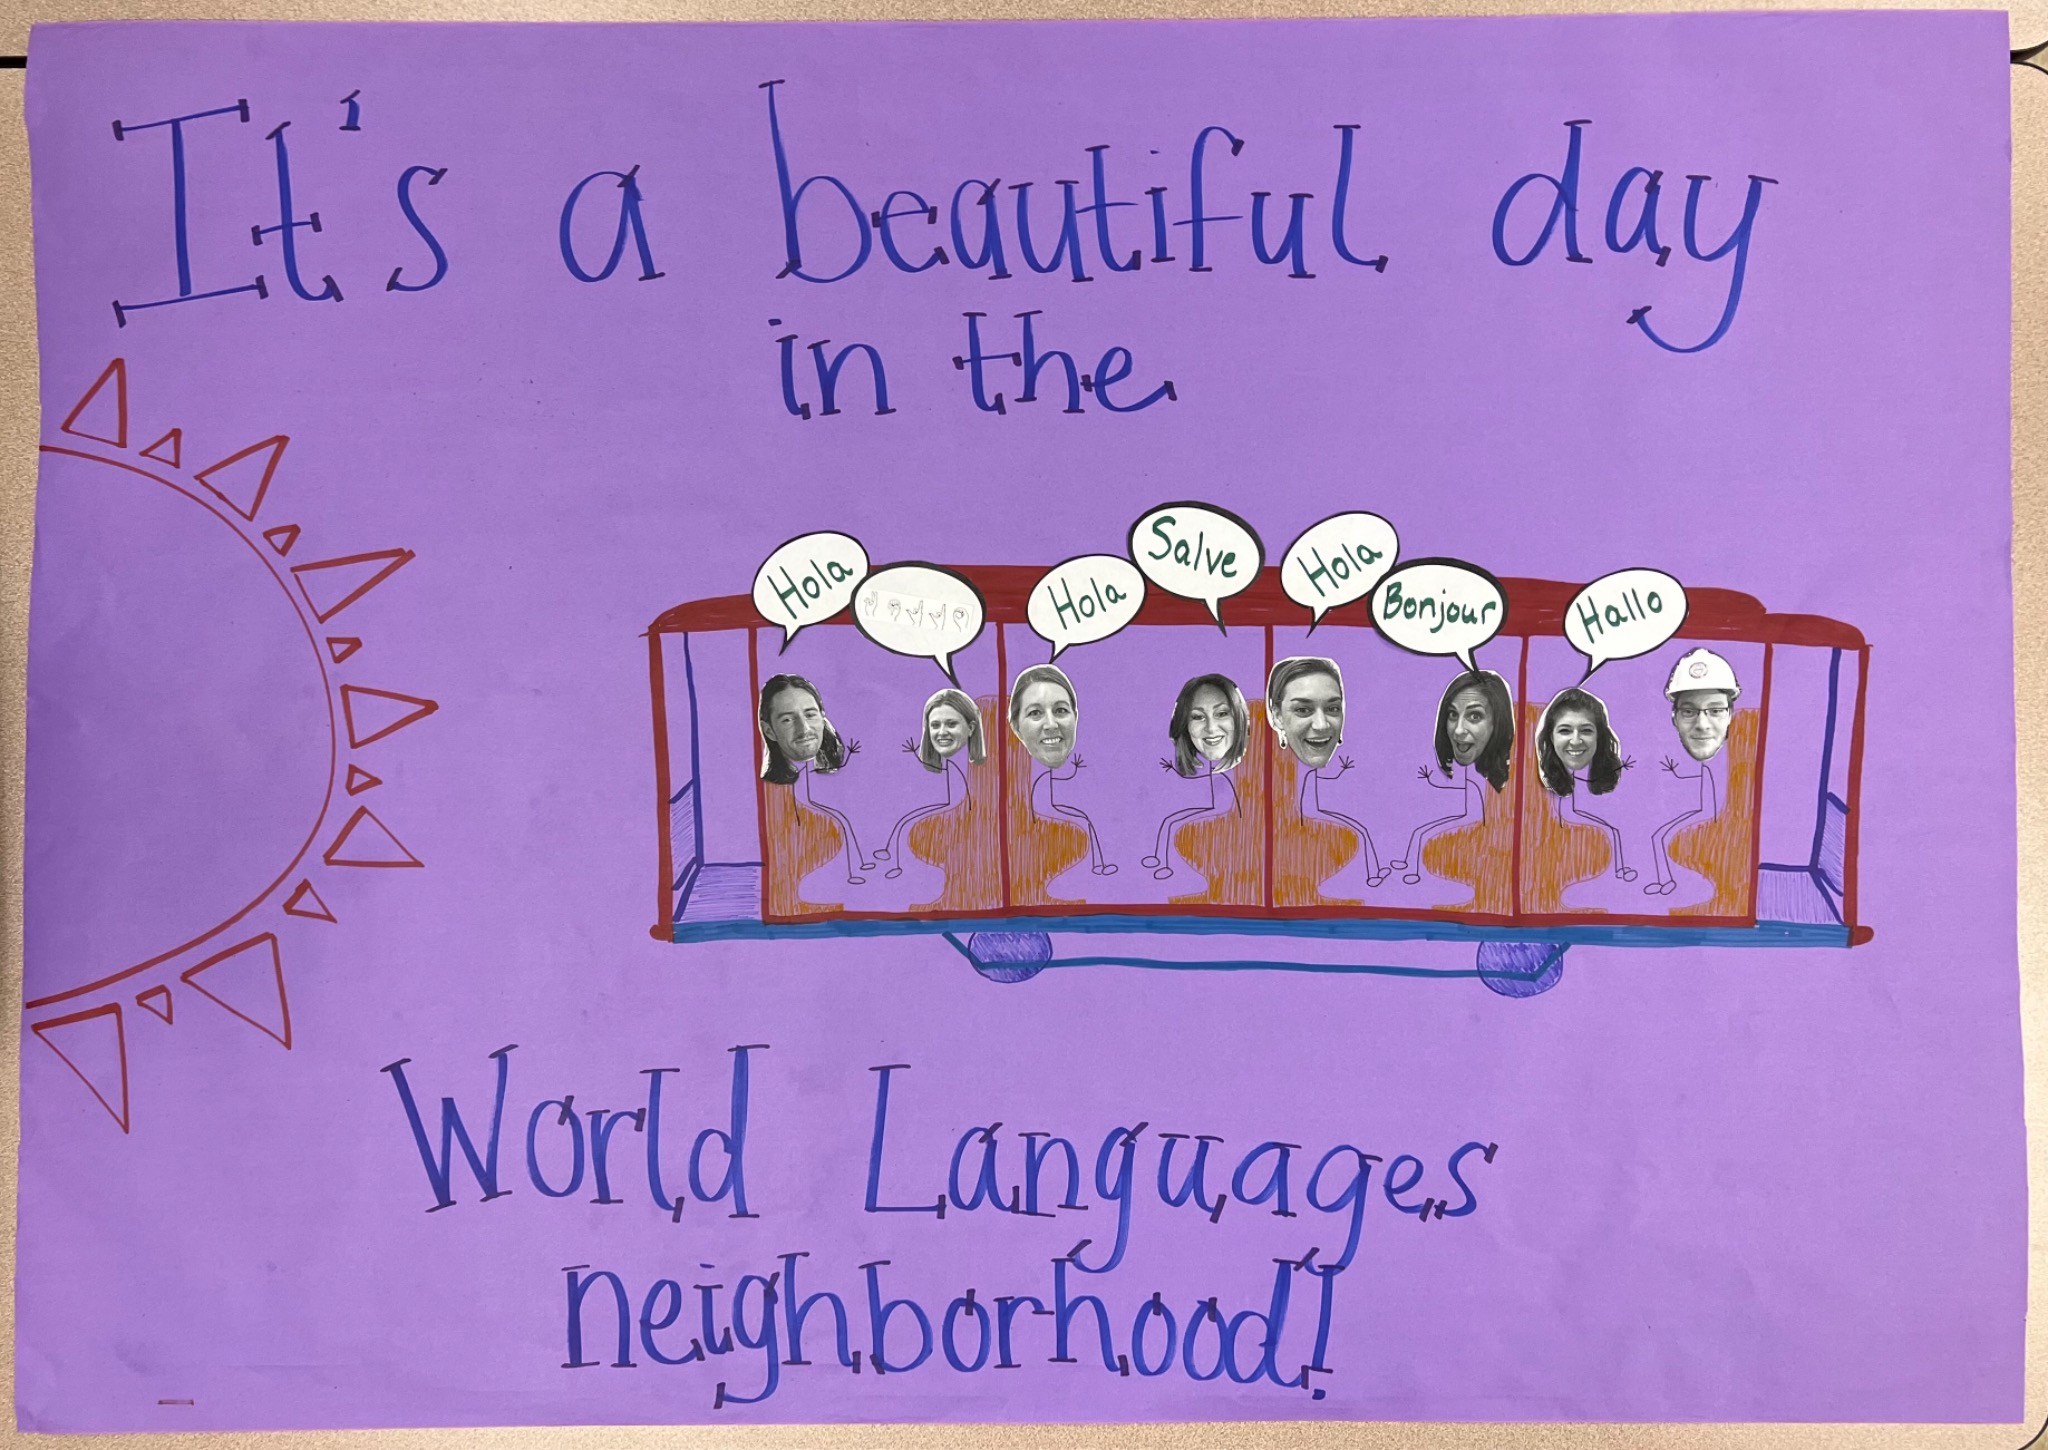 It's a beautiful day
in the
Hola
Hola
Salve
Hola
Bonjour
Hallo
World Languages
neighborhood!